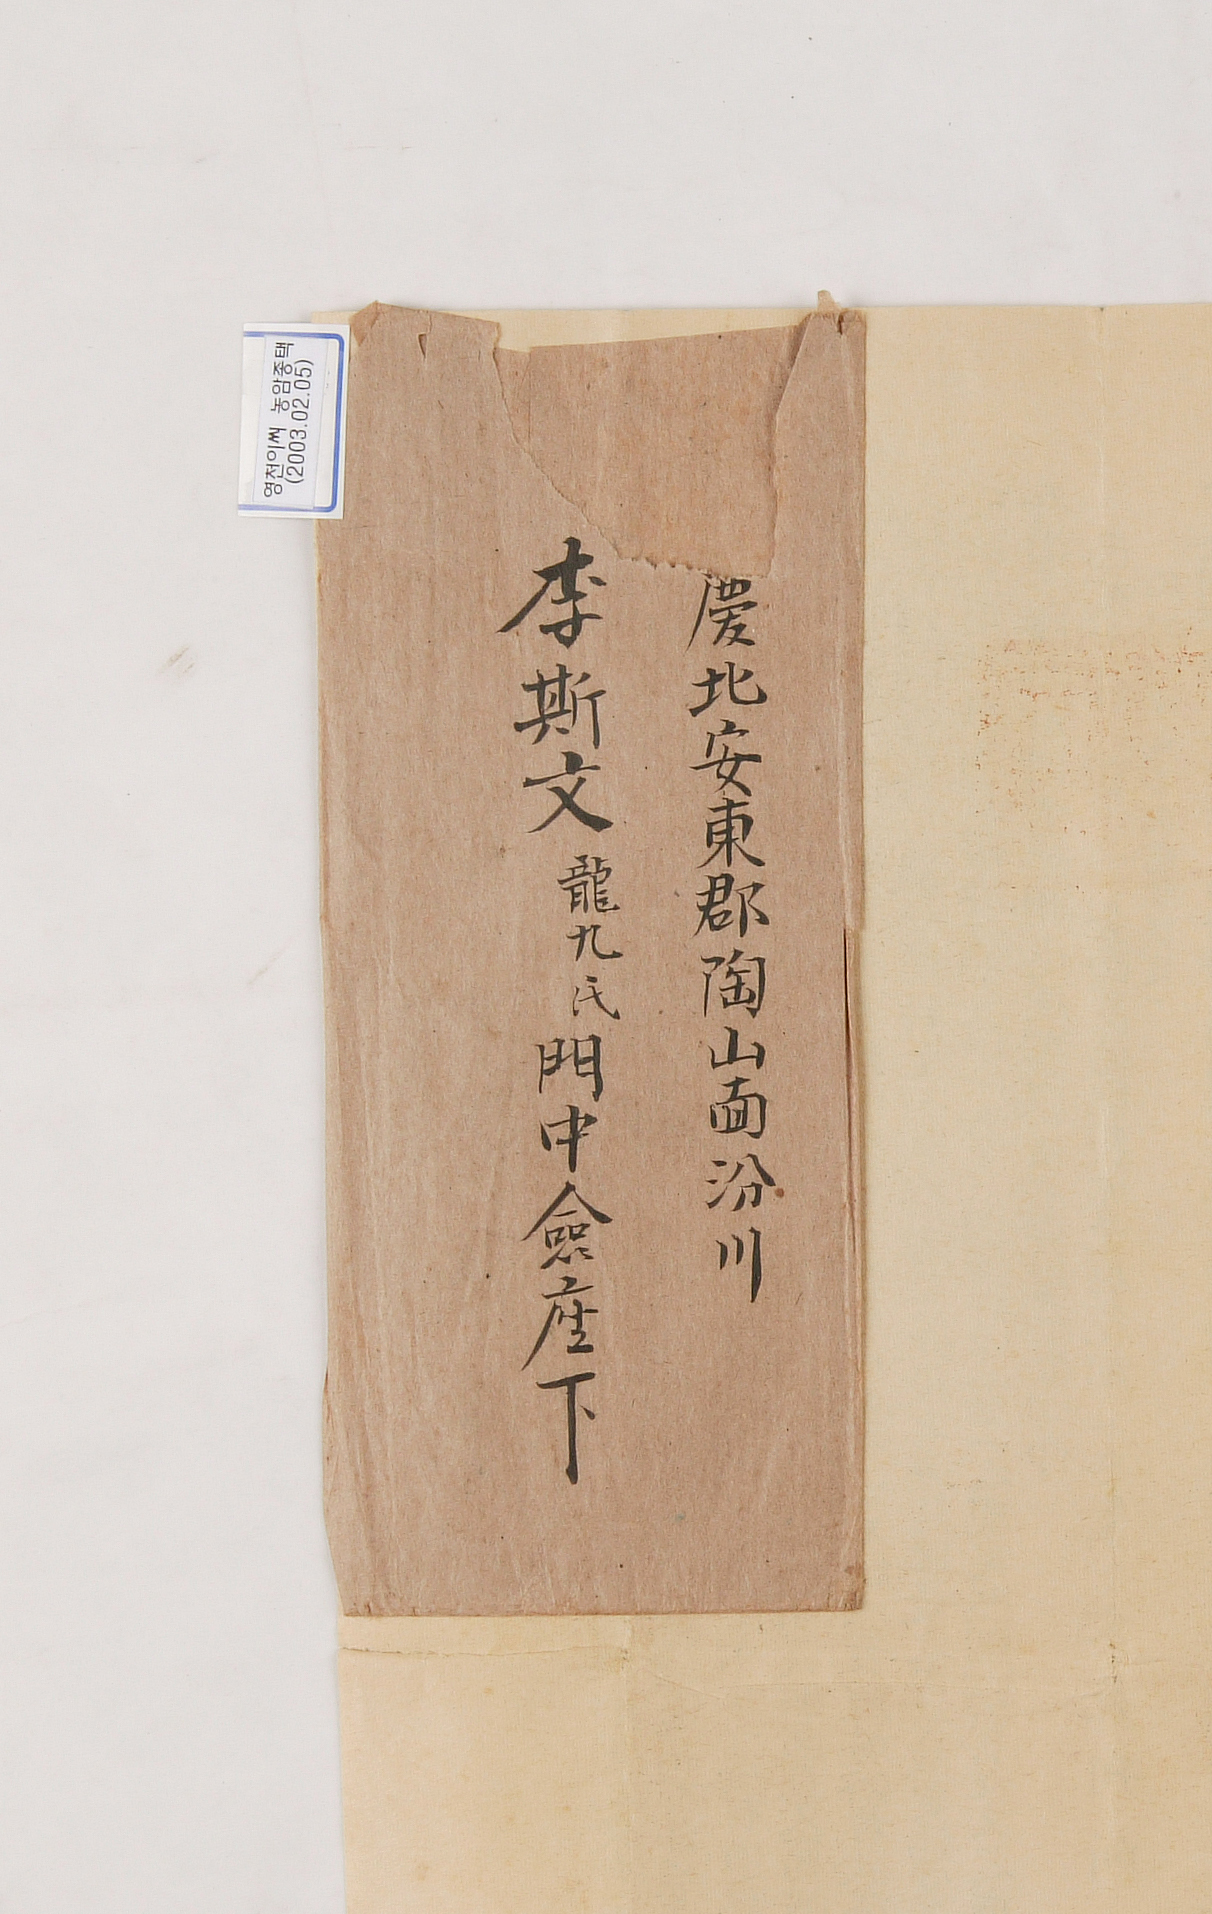 慶北安東郡陶山面汾川
李斯文龍九氏門中僉座下
영천이씨 농암종택
(2003.02.05)